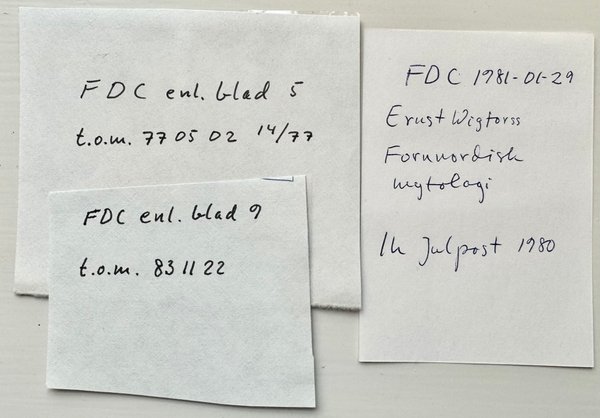 FDC enl. blad 5
t.o.m. 77 05 02 14/77
FDC enl. blad 9
t.o.m. 83 11 22
FDC 1981-01-29
Ernst Wigforss
Fornnordisk
mytologi
Ih Julpost 1980